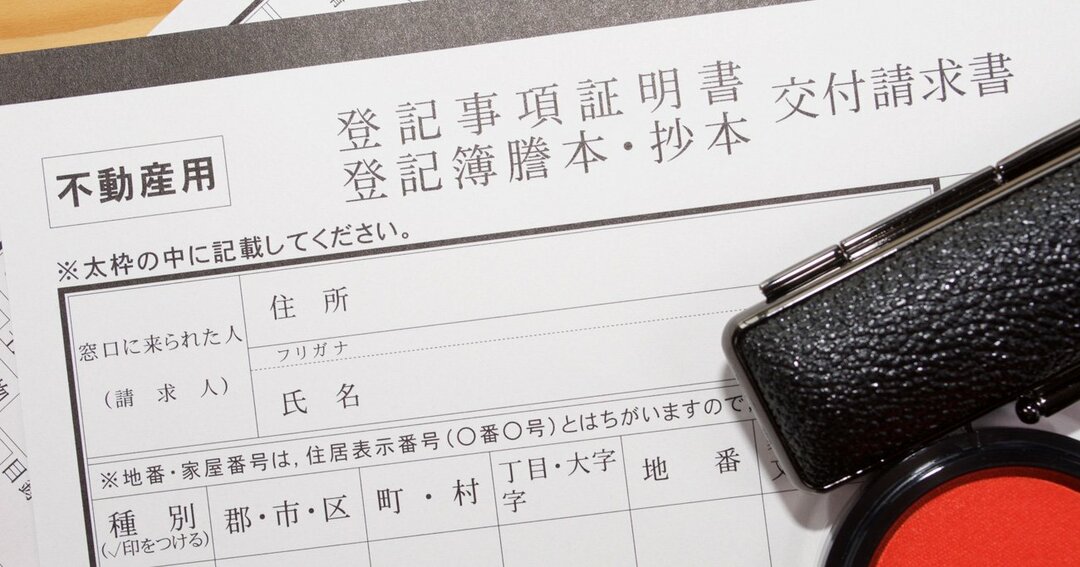 登記事項証明書
登記簿謄本・抄本 交付請求書
不動産用
※太枠の中に記載してください。
窓口に来られた人
(請求人)
住所
フリガナ
氏名
※地番・家屋番号は,住居表示番号(〇番〇号)とはちがいますので,
種別
(√印をつける)
郡・市・区
町・村
丁目・大字
字
地番